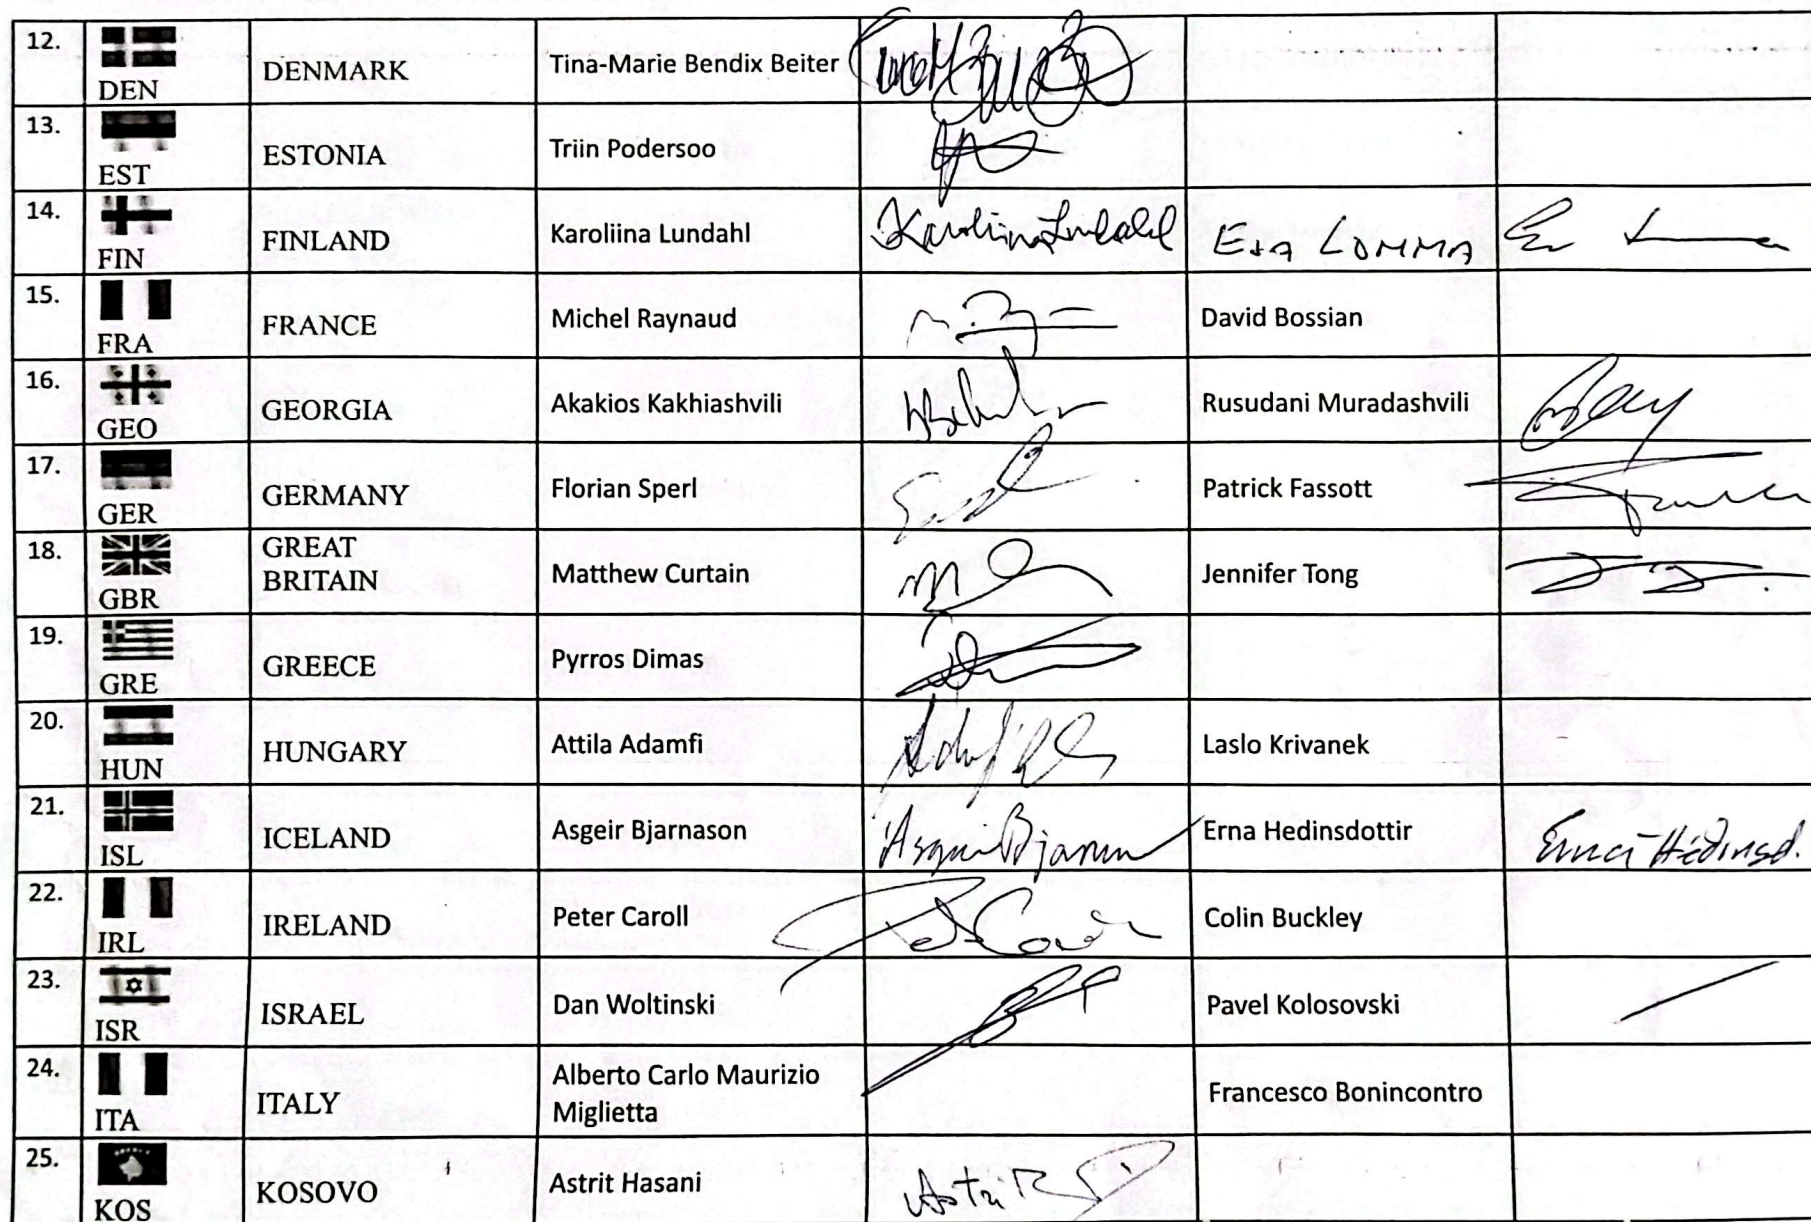 12. DEN DENMARK Tina-Marie Bendix Beiter
13. EST ESTONIA Triin Podersoo
14. FIN FINLAND Karoliina Lundahl Karoliina Lundahl ESA LOMMA
15. FRA FRANCE Michel Raynaud David Bossian
16. GEO GEORGIA Akakios Kakhiashvili Rusudani Muradashvili
17. GER GERMANY Florian Sperl Patrick Fassott
18. GBR GREAT
BRITAIN Matthew Curtain Jennifer Tong
19. GRE GREECE Pyrros Dimas
20. HUN HUNGARY Attila Adamfi Laslo Krivanek
21. ISL ICELAND Asgeir Bjarnason Erna Hedinsdottir
22. IRL IRELAND Peter Caroll Colin Buckley
23. ISR ISRAEL Dan Woltinski Pavel Kolosovski
24. ITA ITALY Alberto Carlo Maurizio
Miglietta Francesco Bonincontro
25. KOS KOSOVO Astrit Hasani